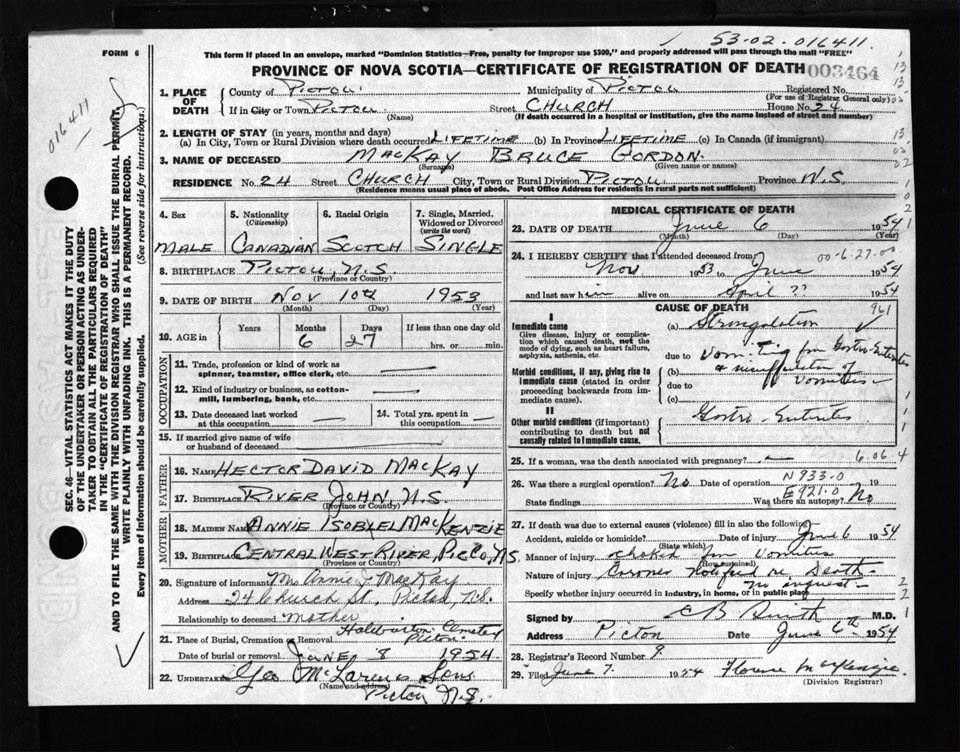 53-02-016411.
FORM 6
This form if placed in an envelope, marked "Dominion Statistics—Free, penalty for improper use $300," and properly addressed will pass through the mail "FREE"
PROVINCE OF NOVA SCOTIA—CERTIFICATE OF REGISTRATION OF DEATH 003464
016411
SEC. 46—VITAL STATISTICS ACT MAKES IT THE DUTY
OF THE UNDERTAKER OR PERSON ACTING AS UNDER-
TAKER TO OBTAIN ALL THE PARTICULARS REQUIRED
IN THE "CERTIFICATE OF REGISTRATION OF DEATH"
AND TO FILE THE SAME WITH THE DIVISION REGISTRAR WHO SHALL ISSUE THE BURIAL PERMIT.
WRITE PLAINLY WITH UNFADING INK. THIS IS A PERMANENT RECORD.
Every item of Information should be carefully supplied. (See reverse side for instructions.)
1. PLACE OF DEATH
County of PICTOU Municipality of PICTOU Registered No.
(For use of Registrar General only)
If in City or Town PICTOU Street CHURCH House No. 24
(Name) (If death occurred in a hospital or institution, give the name instead of street and number)
2. LENGTH OF STAY (in years, months and days)
(a) In City, Town or Rural Division where death occurred LIFETIME (b) In Province LIFETIME (c) In Canada (if immigrant)
3. NAME OF DECEASED MACKAY BRUCE GORDON.
(Surname) (Given name or names)
RESIDENCE No. 24 Street CHURCH City, Town or Rural Division PICTOU Province N.S.
(Residence means usual place of abode. Post Office Address for residents in rural parts not sufficient)
4. Sex
MALE
5. Nationality
(Citizenship)
CANADIAN
6. Racial Origin
SCOTCH
7. Single, Married,
Widowed or Divorced
(write the word)
SINGLE
8. BIRTHPLACE PICTOU, N.S.
(Province or Country)
9. DATE OF BIRTH NOV 10th 1953
(Month) (Day) (Year)
10. AGE in
Years Months Days If less than one day old
6 27 hrs. or min.
OCCUPATION
11. Trade, profession or kind of work as
spinner, teamster, office clerk, etc.
12. Kind of industry or business, as cotton-
mill, lumbering, bank, etc.
13. Date deceased last worked
at this occupation
14. Total yrs. spent in
this occupation
15. If married give name of wife
or husband of deceased
FATHER
16. NAME HECTOR DAVID MACKAY
17. BIRTHPLACE RIVER JOHN, N.S.
(Province or Country)
MOTHER
18. MAIDEN NAME ANNIE ISOBLEL MACKENZIE
19. BIRTHPLACE CENTRAL WEST RIVER, PIC CO, NS
(Province or Country)
20. Signature of informant Mrs Annie I MacKay
Address 24 Church St., Pictou, N.S.
Relationship to deceased Mother
21. Place of Burial, Cremation or Removal Haliburton Cemetery
Pictou
Date of burial or removal JUNE 8 1954
22. UNDERTAKER Geo McLaren & Sons
(Name and address)
Pictou N.S.
MEDICAL CERTIFICATE OF DEATH
23. DATE OF DEATH June 6 1954
(Month) (Day) (Year)
24. I HEREBY CERTIFY that I attended deceased from
Nov 1953 to June 1954
and last saw him alive on April ?? 1954
CAUSE OF DEATH 961
I
Immediate cause
Give disease, injury or complication
which caused death, not the
mode of dying, such as heart failure,
asphyxia, asthenia, etc.
(a) Strangulation
due to
Morbid conditions, if any, giving rise to
immediate cause (stated in order
proceeding backwards from immediate
cause).
(b)
due to
(c)
II
Other morbid conditions (if important)
contributing to death but not
causally related to immediate cause.
Gastro-Enteritis
25. If a woman, was the death associated with pregnancy? 6.06.4
26. Was there a surgical operation? No Date of operation N933.0 19
State findings E921.0 Was there an autopsy? No
27. If death was due to external causes (violence) fill in also the following:
Accident, suicide or homicide? Date of injury June 6 1954
(State which)
Manner of injury choked from vomitus
(How sustained)
Nature of injury Coroner notified re Death-
no inquest-
Specify whether injury occurred in industry, in home, or in public place
Signed by E B Smith M.D.
Address Pictou Date June 6th 1954
28. Registrar's Record Number 9.
29. Filed June 7. 1954 Florence MacKenzie
(Division Registrar)